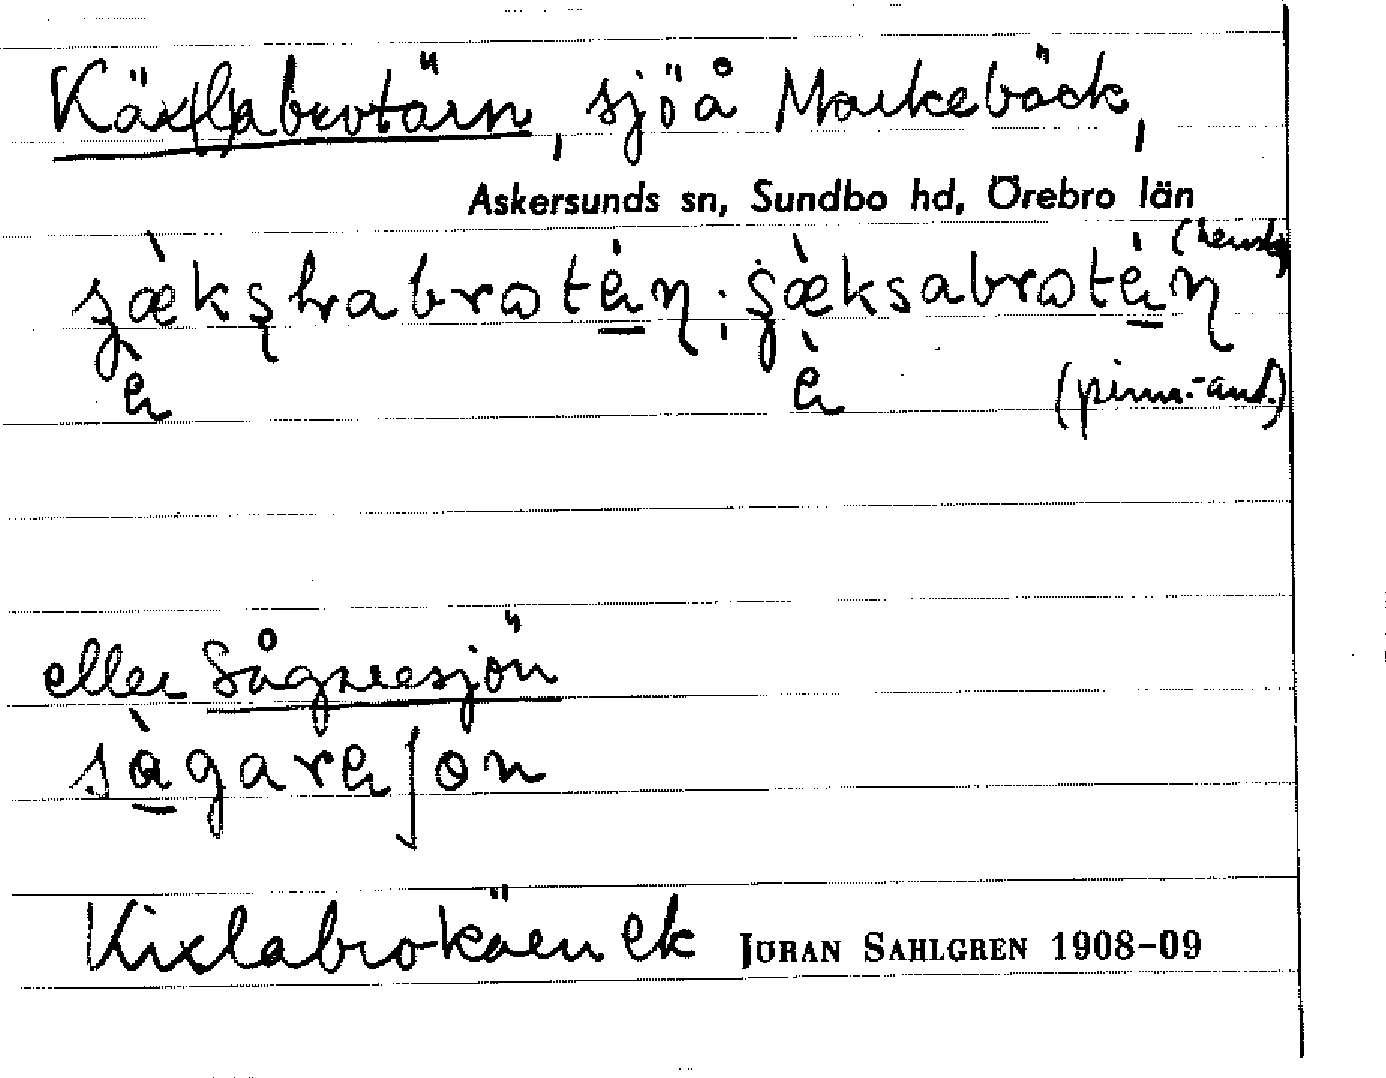 Käx(l)abrotärn, sjö å Markebäck,
Askersunds sn, Sundbo hd, Örebro län
sæ̀kshabrotén; sæ̀ksabrotén
è è (pinn.-and.)
eller Sågaresjön
sàgareʃon
Kixlabrokärn ek JÖRAN SAHLGREN 1908-09